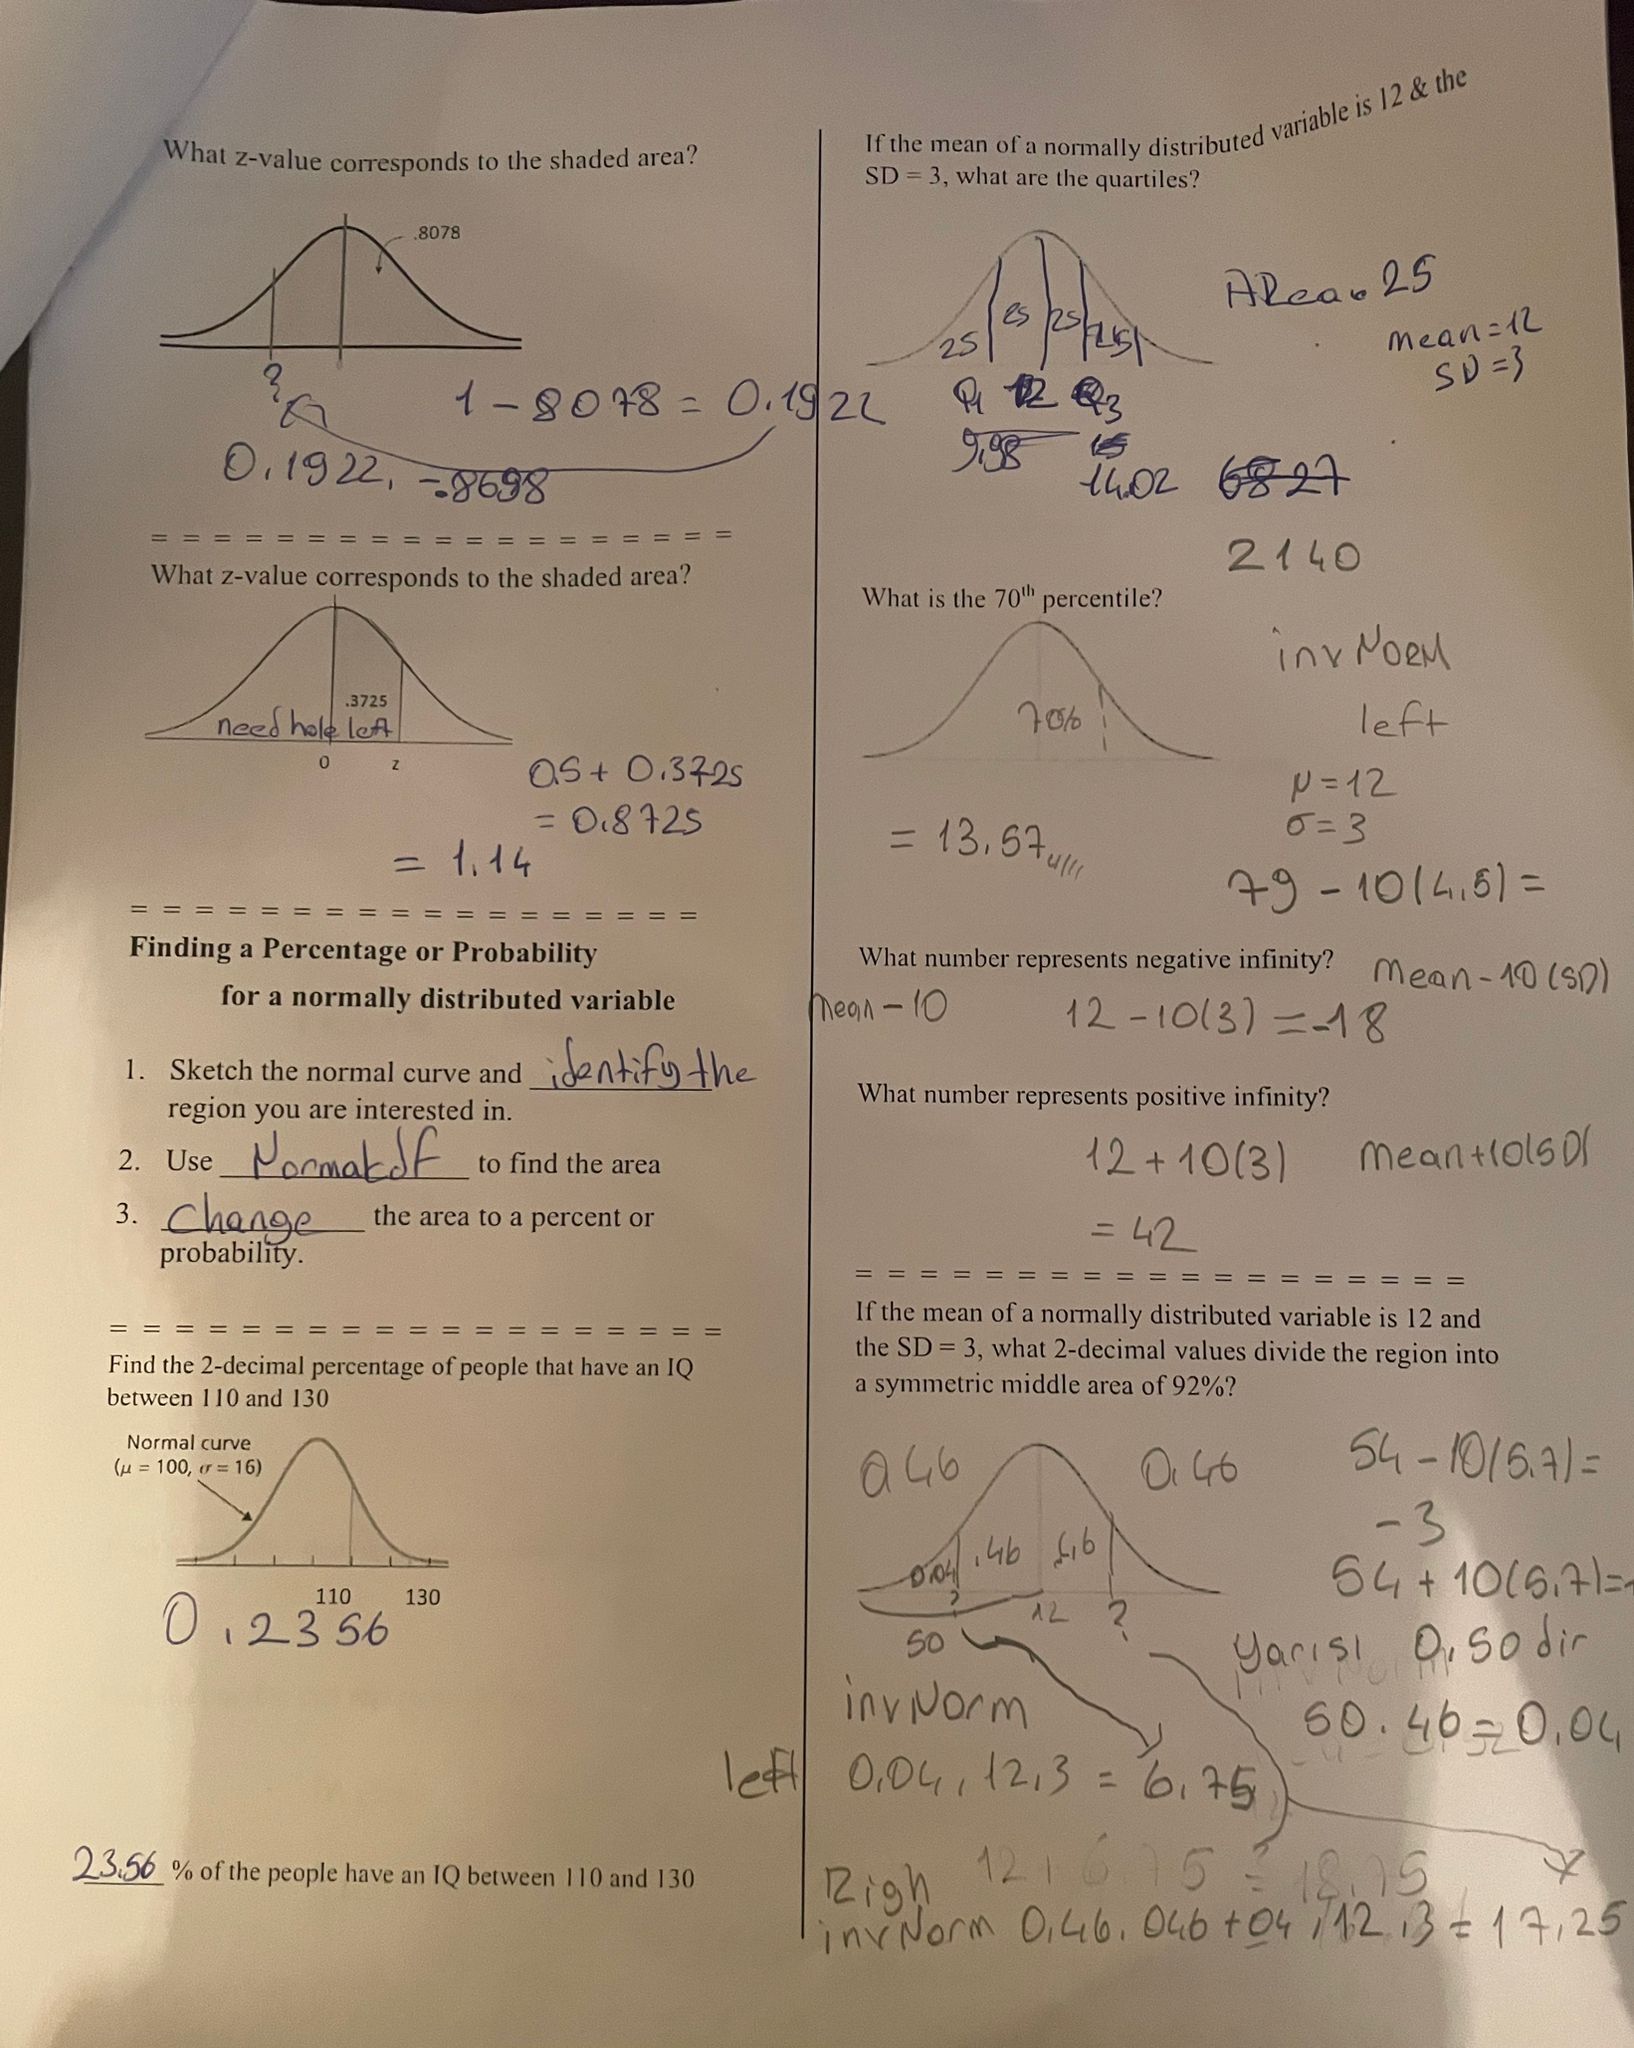 What z-value corresponds to the shaded area?
.8078
?
1 - 8078 = 0.1922
0.1922. -.8698
= = = = = = = = = = = = = = = = = = =
What z-value corresponds to the shaded area?
.3725
need hole left
0 z
0.5 + 0.3725
= 0.8725
= 1.14
= = = = = = = = = = = = = = = = = =
Finding a Percentage or Probability
for a normally distributed variable
1. Sketch the normal curve and identify the
region you are interested in.
2. Use Normalcdf to find the area
3. Change the area to a percent or
probability.
= = = = = = = = = = = = = = = = = = =
Find the 2-decimal percentage of people that have an IQ
between 110 and 130
Normal curve
(μ = 100, σ = 16)
110 130
0.2356
23.56 % of the people have an IQ between 110 and 130
If the mean of a normally distributed variable is 12 & the
SD = 3, what are the quartiles?
Area. 25
mean = 12
SD = 3
25 25 25 25
Q1 12 Q3
9,98
14.02 6827
2140
What is the 70th percentile?
invNorm
70%
left
μ = 12
σ = 3
= 13,57
79 - 10(4,5) =
What number represents negative infinity? Mean - 10(SD)
mean - 10 12 - 10(3) = -18
What number represents positive infinity?
12 + 10(3) Mean + 10(SD(
= 42
= = = = = = = = = = = = = = = = = = =
If the mean of a normally distributed variable is 12 and
the SD = 3, what 2-decimal values divide the region into
a symmetric middle area of 92%?
0.46 0.46 54 - 10(5.7) =
-3
0.04 .46
54 + 10(5.7) =
? 12 ?
50 yarısı 0,50 dir
invNorm 50. 46 = 0,04
left 0,04, 12,3 = 6,75
Righ 12 + 6.75 = 18,75
invNorm 0,46. 046 + 04, 12,3 = 17,25